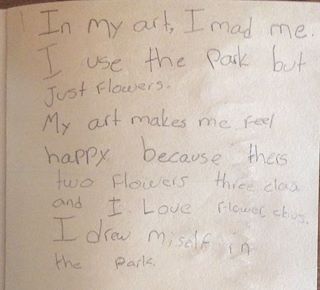 In my art, I mad me.
I use the Park but
Just Flowers.
My art makes me Feel
happy because thers
two Flowers three
and I Love Flower
I drew miself in
the Park.